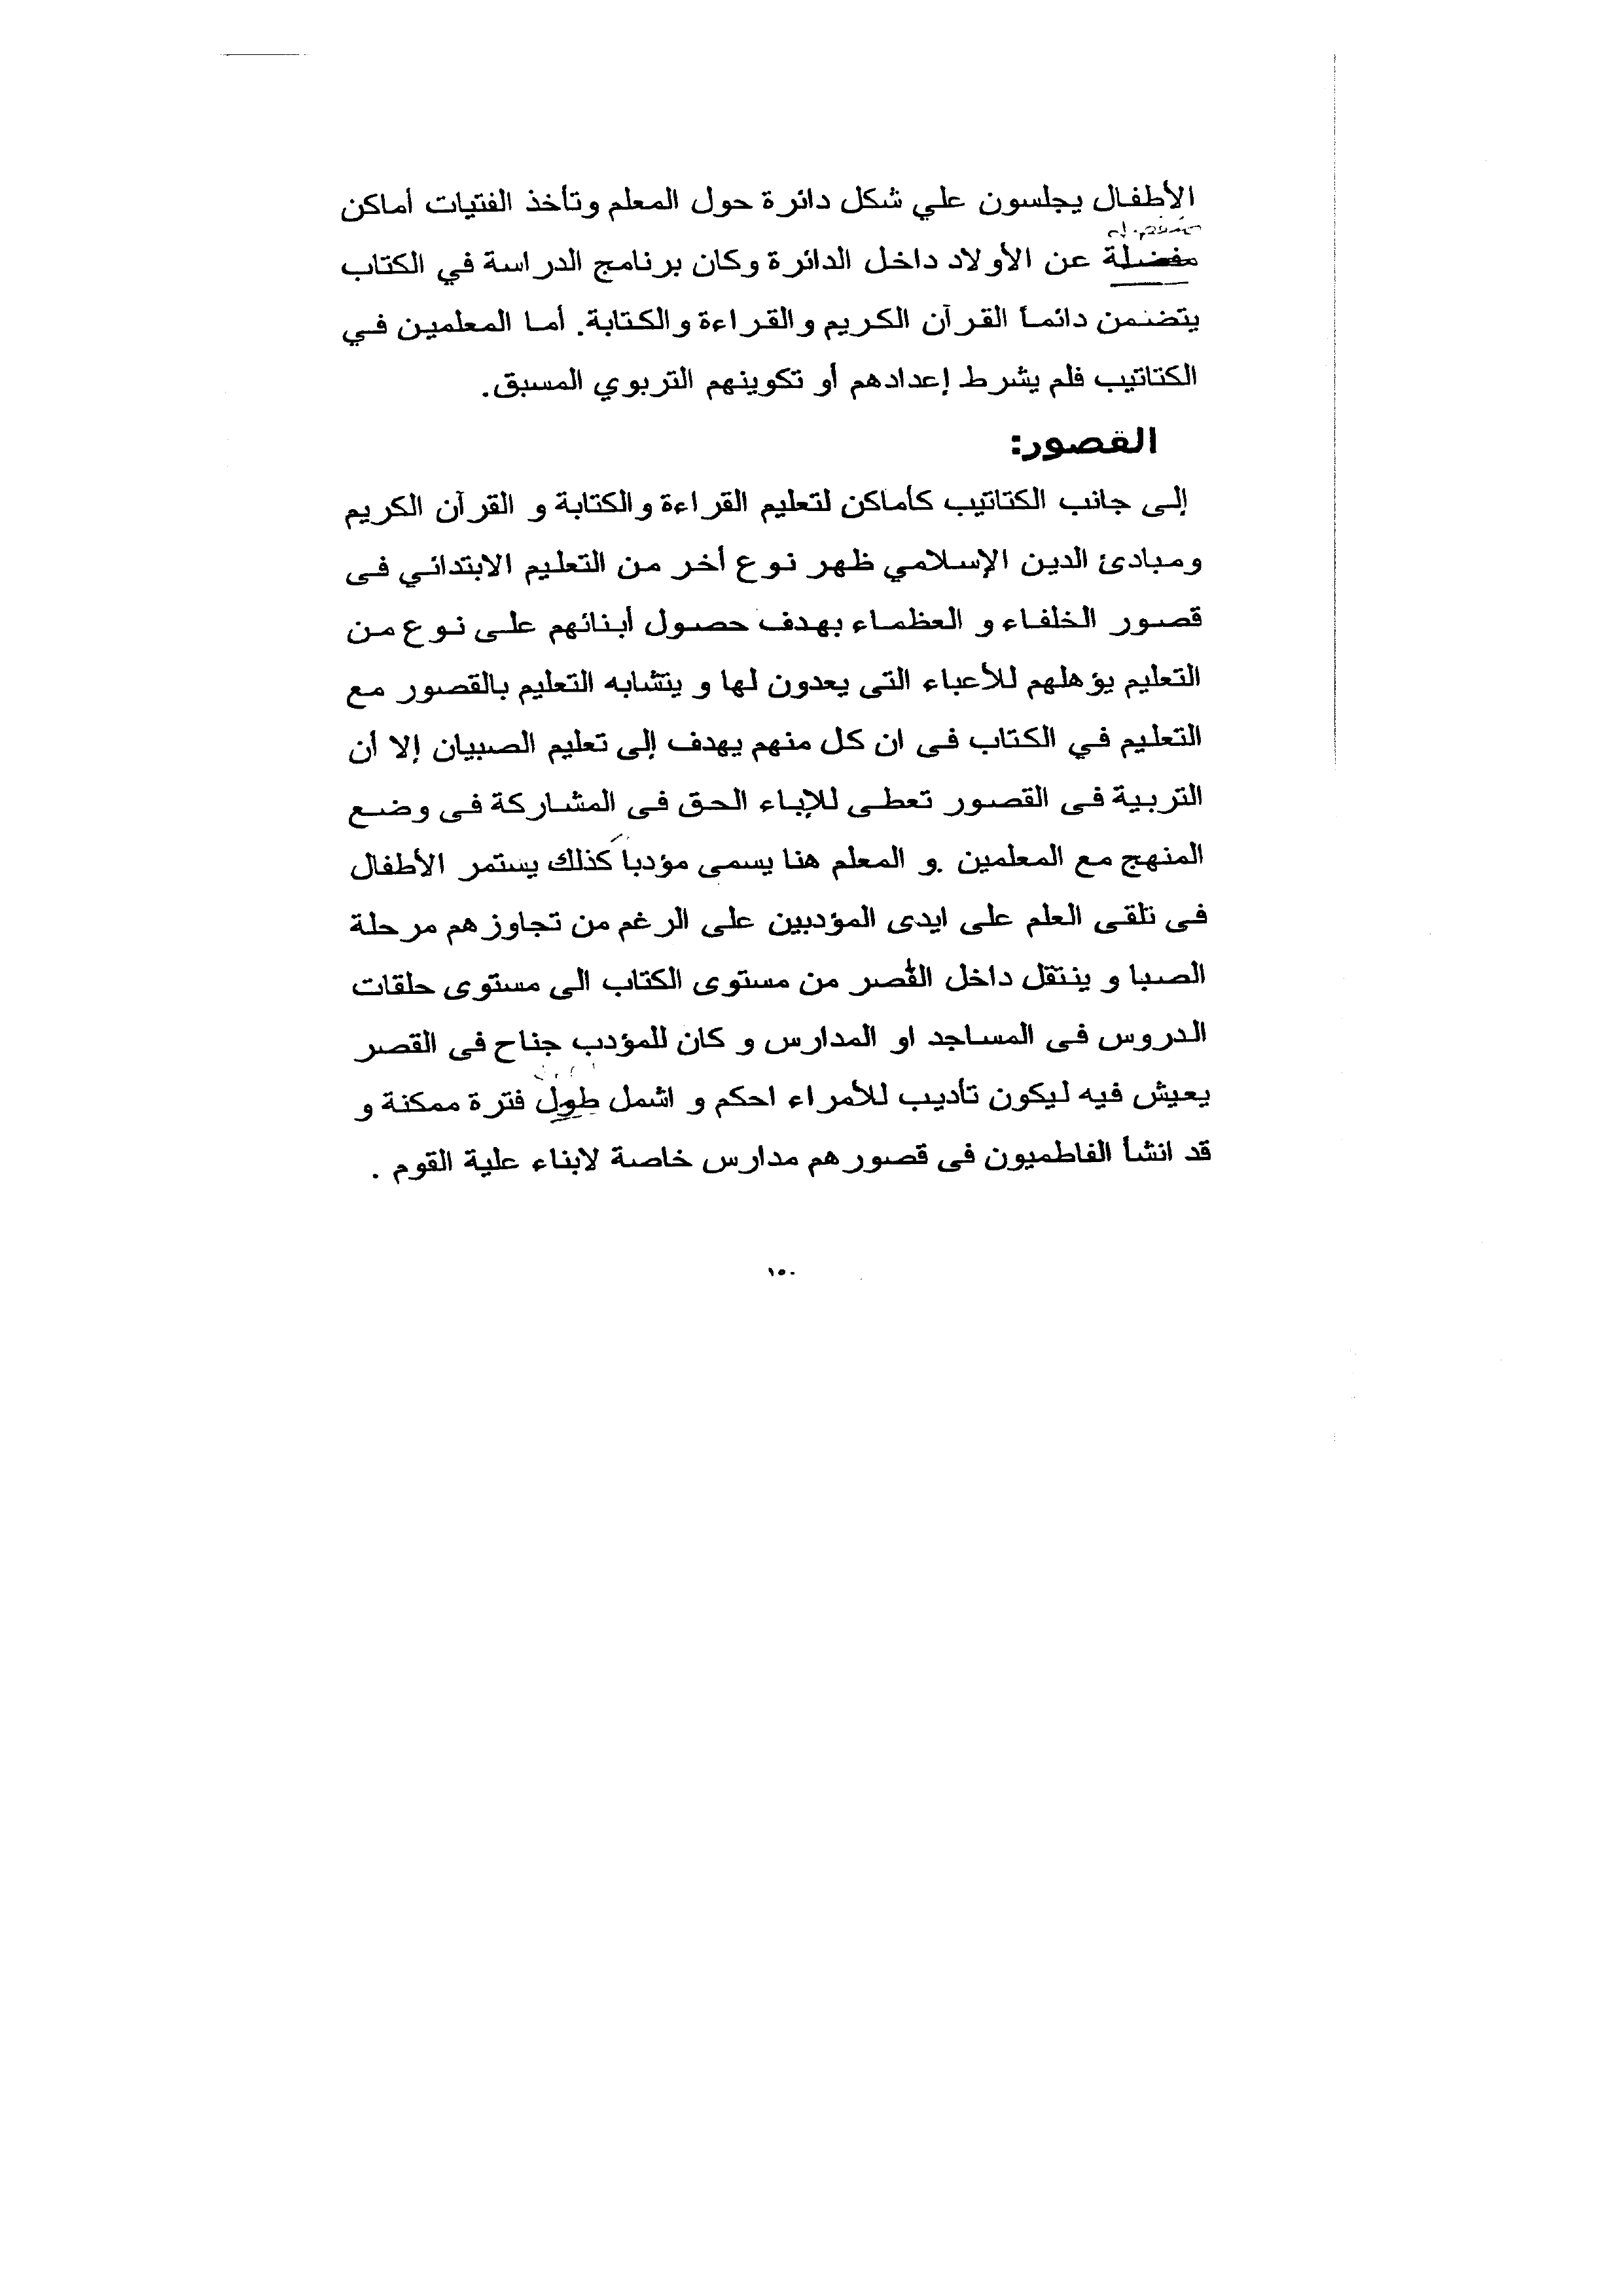 الأطفال يجلسون علي شكل دائرة حول المعلم وتأخذ الفتيات أماكن
مفضلة عن الأولاد داخل الدائرة وكان برنامج الدراسة في الكتاب
يتضمن دائماً القرآن الكريم والقراءة والكتابة. أما المعلمين في
الكتاتيب فلم يشرط إعدادهم أو تكوينهم التربوي المسبق.
القصور:
إلى جانب الكتاتيب كأماكن لتعليم القراءة والكتابة و القرآن الكريم
ومبادئ الدين الإسلامي ظهر نوع أخر من التعليم الابتدائي فى
قصور الخلفاء و العظماء بهدف حصول أبنائهم على نوع من
التعليم يؤهلهم للأعباء التى يعدون لها و يتشابه التعليم بالقصور مع
التعليم في الكتاب فى ان كل منهم يهدف إلى تعليم الصبيان إلا أن
التربية فى القصور تعطى للإباء الحق فى المشاركة فى وضع
المنهج مع المعلمين .و المعلم هنا يسمى مؤدباً كذلك يستمر الأطفال
فى تلقى العلم على ايدى المؤدبين على الرغم من تجاوزهم مرحلة
الصبا و ينتقل داخل القصر من مستوى الكتاب الى مستوى حلقات
الدروس فى المساجد او المدارس و كان للمؤدب جناح فى القصر
يعيش فيه ليكون تأديب للأمراء احكم و اشمل طول فترة ممكنة و
قد انشأ الفاطميون فى قصورهم مدارس خاصة لابناء علية القوم .
١٥٠